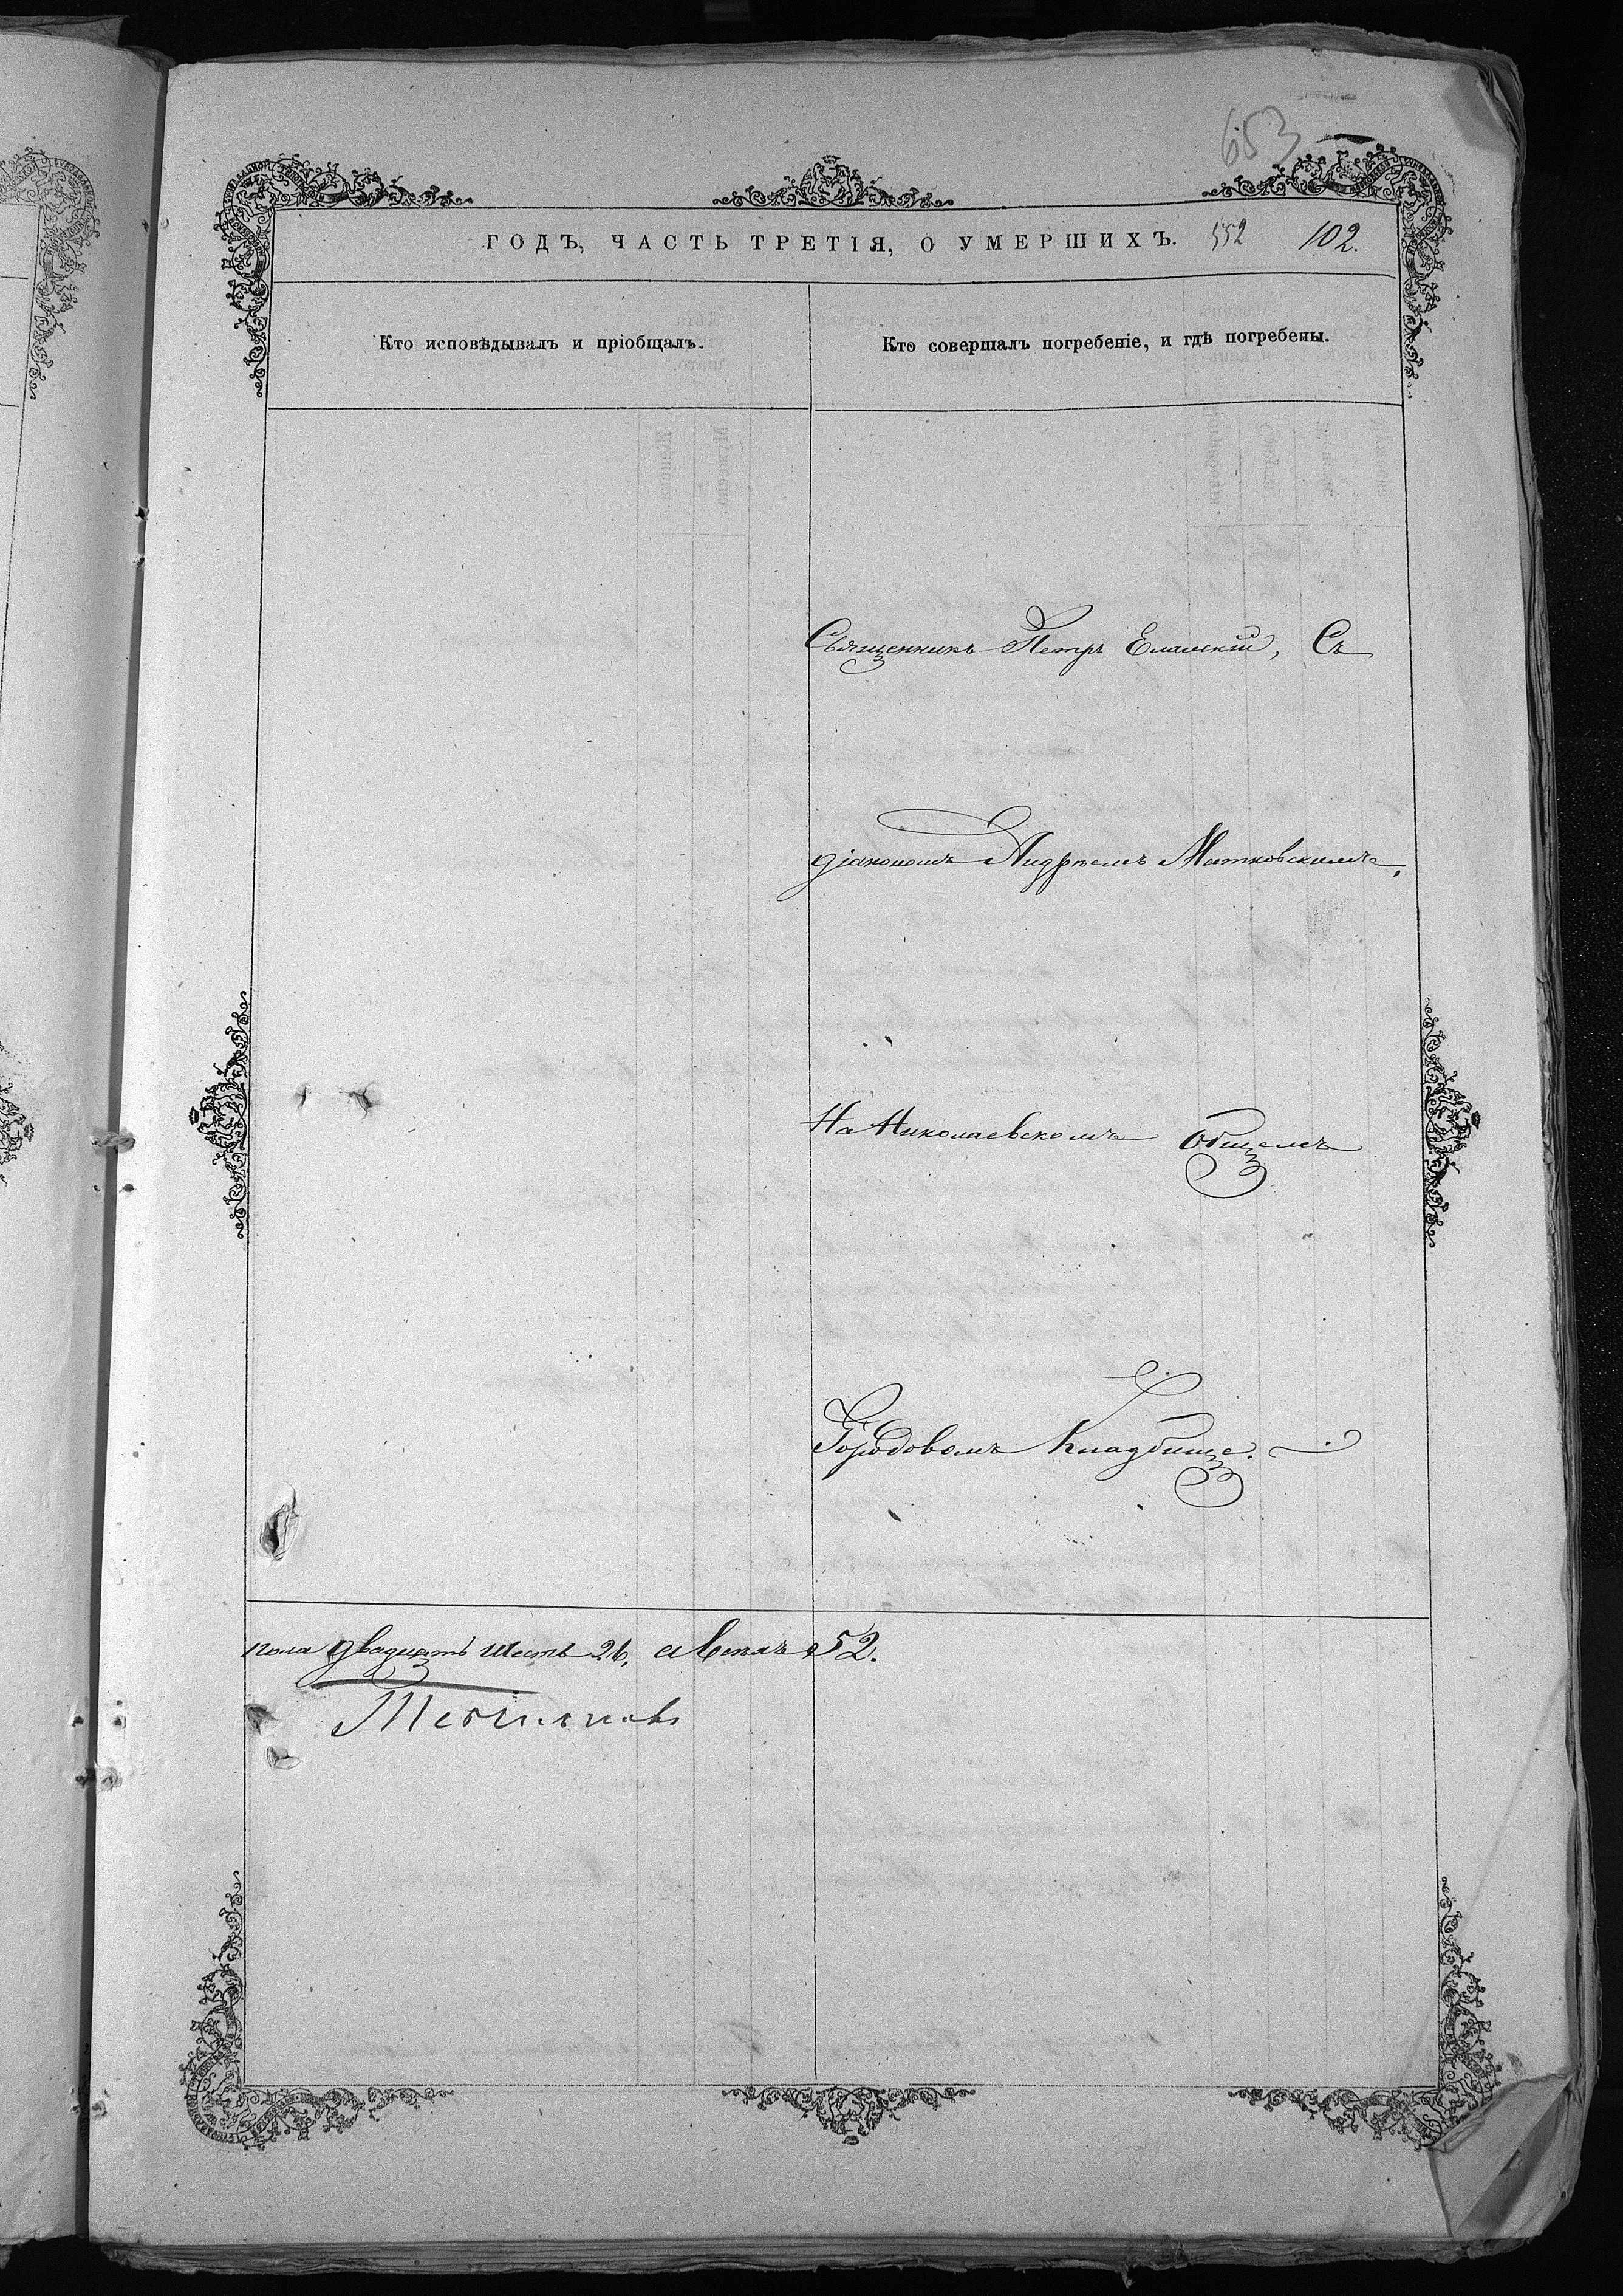 653
ГОДЪ, ЧАСТЬ ТРЕТІЯ, О УМЕРШИХЪ. 552 102.
Кто исповѣдывалъ и пріобщалъ.
Кто совершалъ погребеніе, и гдѣ погребены.
Священникъ Петръ Еланскій, Съ
діакономъ Андреемъ Матковскимъ,
На Николаевскомъ Общемъ
Городовомъ Кладбище.
пола двадцать шесть 26, а всѣхъ 52.